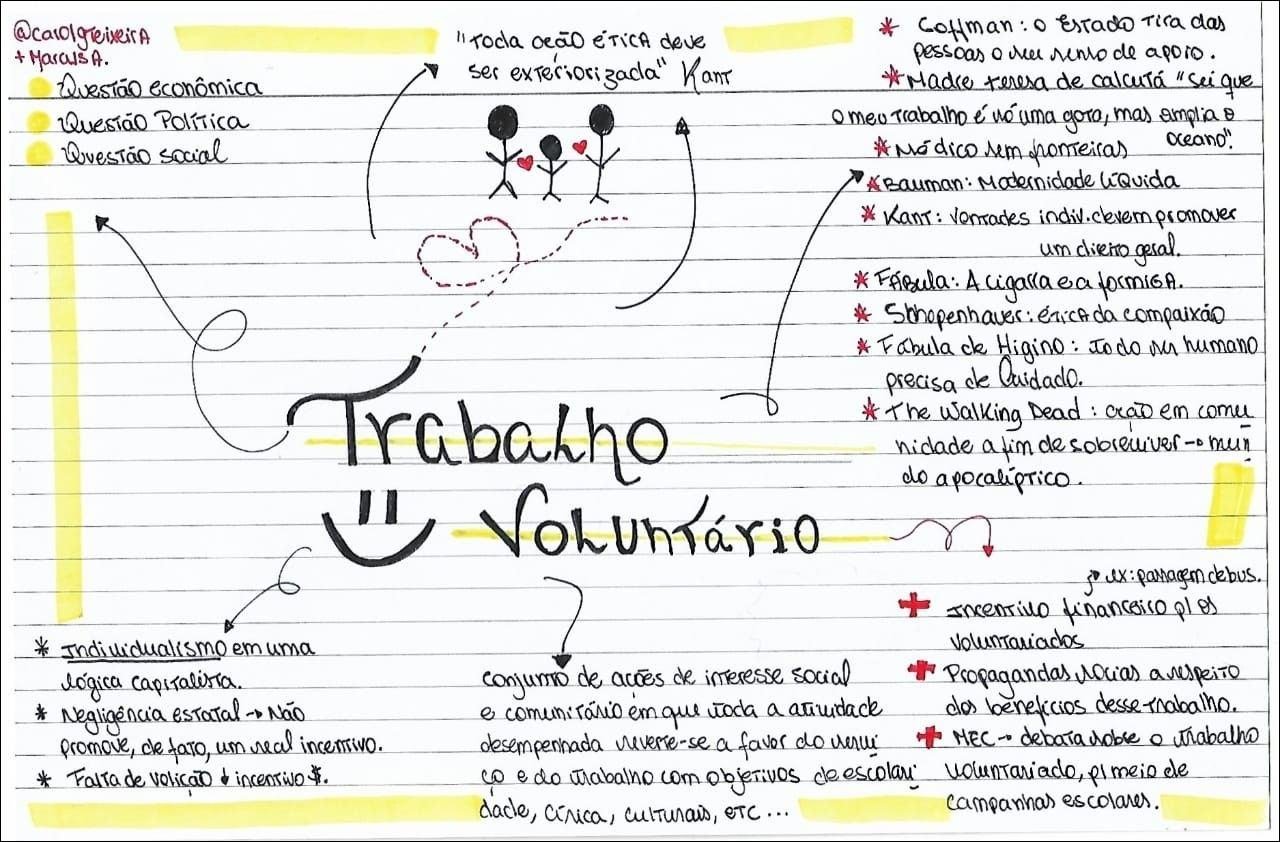 @carolgteixeirA
+ MarcusA.
Questão econômica
Questão Política
Questão social
"Toda ação ética deve
ser exteriorizada" Kant
* Goffman: o Estado tira das
pessoas o seu senso de apoio.
* Madre teresa de calcutá "sei que
o meu trabalho é só uma gota, mas amplia o
oceano".
* Médico sem fronteiras
* Bauman: Modernidade líquida
* Kant: vontades indiv. devem promover
um direito geral.
* Fábula: A cigarra e a formiga.
* Schopenhauer: ética da compaixão
* Fábula de Higino: todo ser humano
precisa de Cuidado.
* The Walking Dead: ação em comu
nidade a fim de sobreviver → mun
do apocalíptico.
Trabalho
Voluntário
* Individualismo em uma
lógica capitalista.
* Negligência estatal → Não
promove, de fato, um real incentivo.
* Falta de volição ↓ incentivo $.
conjunto de ações de interesse social
e comunitário em que toda a atividade
desempenhada reverte-se a favor do servi
ço e do trabalho com objetivos de escolari
dade, cívica, culturais, etc...
ex: passagem de bus.
+ Incentivo financeiro p/ os
voluntariados
+ Propagandas sócias a respeito
dos benefícios desse trabalho.
+ MEC → debata sobre o trabalho
voluntariado, p/ meio de
campanhas escolares.